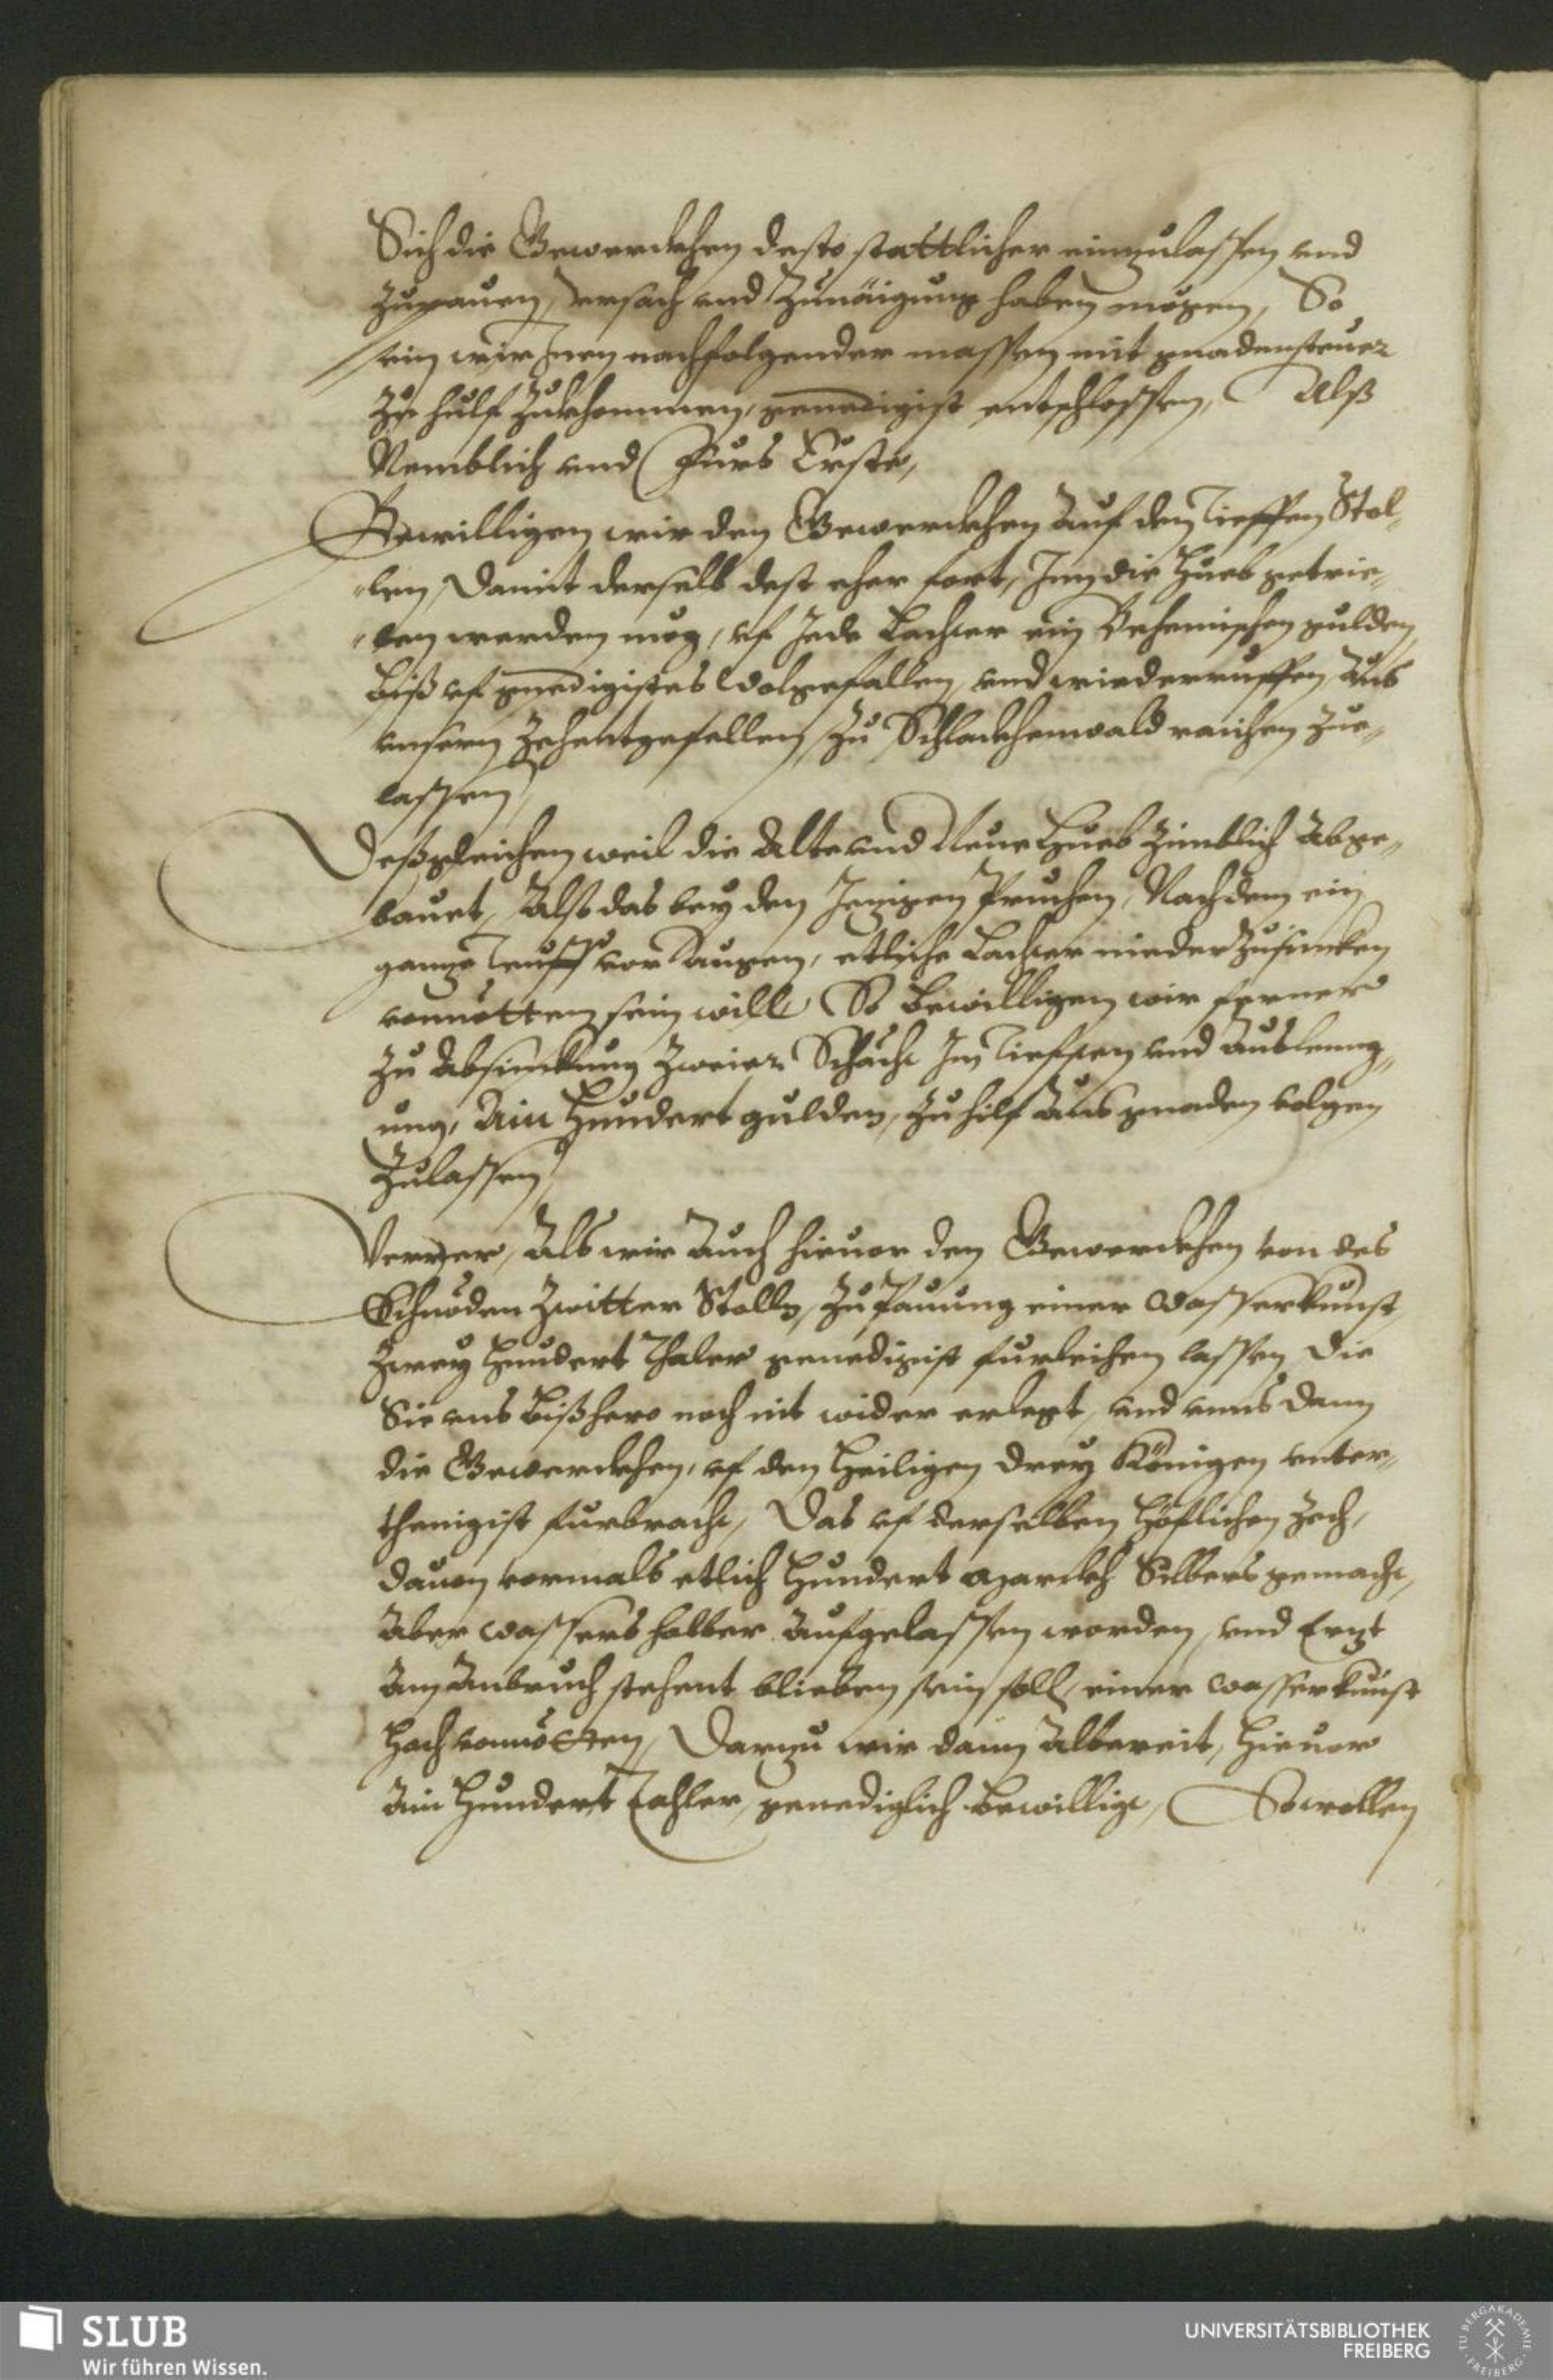 Sich die Gewerckhen desto stattlicher einzulassen vnd
zupauen, vrsach vnd Zunäigung haben mögen, So
sein wir Inen nachfolgender massen mit gnadensteuer
Zu hülf Zukhommen, genedigist entschlossen, Alß
Nemblich vnd Fürs Erste,
Bewilligen wir den Gewerckhen Auf den Tieffen Stol„
„len, Damit derselb dest eher fort, In die Hueb getrie„
„ben werden mög, vf Jede Lachter ein Behemischen gulden,
biß vf gnedigistes Wolgefallen, vnd wiederruffen, Aus
vnsern Zehentgefellen, zu Schlackhenwald raichen Zue„
lassen,
Deßgleichen weil die Alte vnd Neue Hueb Zimblich Abge„
bauet, Also das bey den Jenigen Pruchen, Nachdem ein
gantze Teuff vor Augen, etliche Lachter nieder Zusincken
vonnötten sein will, So bewilligen wir ferner
Zu Absinckung Zweier Schächt Im Tieffen vnd Auslenng„
ung, Ain Hundert gulden, Zu hilf Aus gnaden volgen
Zulassen,
Verner, Als wir Auch hieuor den Gewerckhen von des
Schnöden Zwitter Stolln, Zu Pauung einer Wasserkunst,
Zwey Hundert Thaler genedigist furleihen lassen, Die
Sie vns bißhero noch nit wider erlegt, vnd vnns dann
die Gewerckhen, vf den Heiligen Drey Königen vnter„
thenigist furbracht, Das vf derselben Höflichen Zech,
dauon vormals etlich Hundert Marckh Silbers gemacht,
Aber Wassers halber Aufgelassen worden, vnd Ertzt
Am Anbruch stehent blieben sein soll, einer Wasserkunst
Hoch vonnötten, Dartzu wir dann Albereit, Hieuor
Ain Hundert Tahler, genediglich bewilligt, So wollen
SLUB
Wir führen Wissen.
UNIVERSITÄTSBIBLIOTHEK
FREIBERG
TU BERGAKADEMIE
FREIBERG